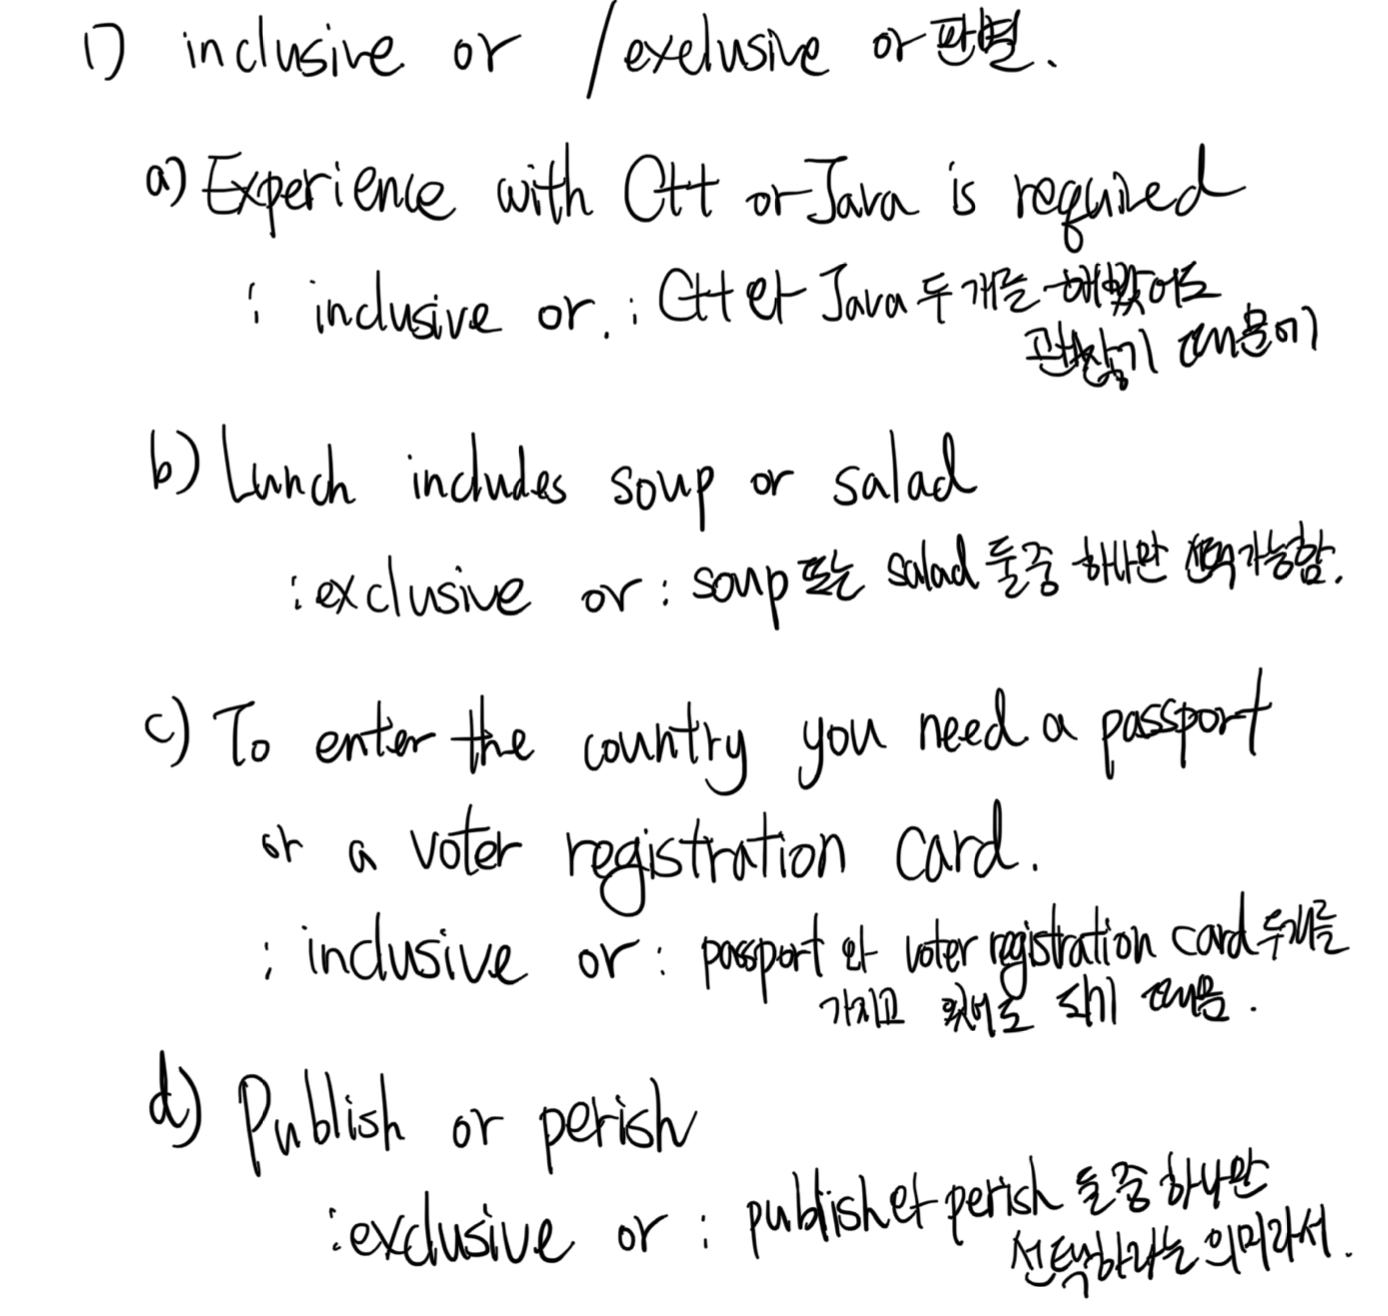 1) inclusive or / exclusive or 판별.
a) Experience with C++ or Java is required
: inclusive or. : C++와 Java 두 개를 해봤어도
괜찮기 때문에
b) Lunch includes soup or salad
: exclusive or : soup 또는 salad 둘중 하나만 선택가능함.
c) To enter the country you need a passport
or a voter registration card.
: inclusive or : passport 와 voter registration card 두개를
가지고 있어도 되기 때문.
d) Publish or perish
: exclusive or : publish와 perish 둘중 하나만
선택하라는 의미라서.